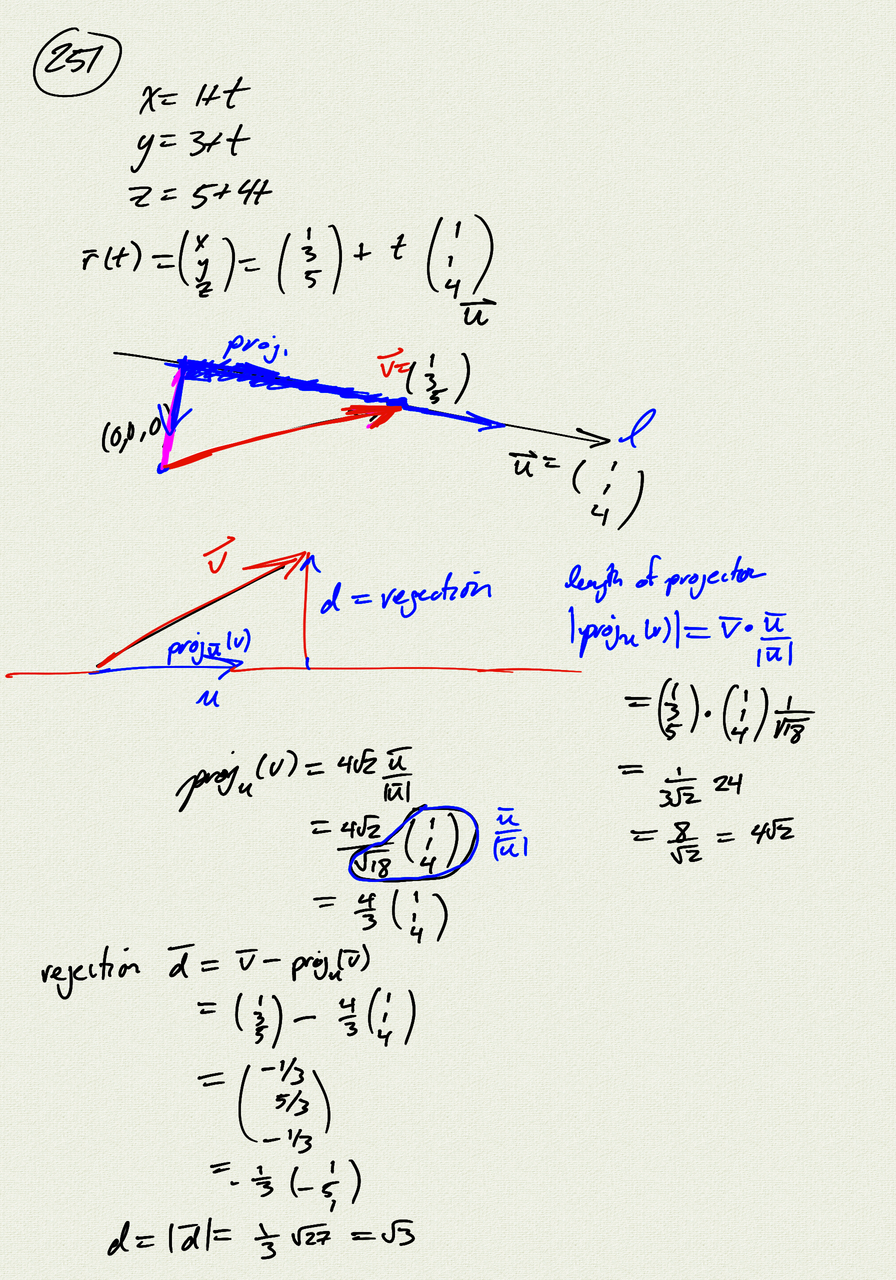 257
x = 1+t
y = 3+t
z = 5+4t
r̄(t) = (x y z) = (1 3 5) + t (1 1 4)
u⃗
proj.
v⃗ = (1 3 5)
(0,0,0)
l
u⃗ = (1 1 4)
v⃗
d = rejection
proj_ū(v)
u
length of projector
|proj_u(v)| = v̄ · ū/|ū|
= (1 3 5) · (1 1 4) 1/√18
= 1/3√2 24
= 8/√2 = 4√2
proj_u(v) = 4√2 ū/|ū|
= 4√2/√18 (1 1 4) ū/|ū|
= 4/3 (1 1 4)
rejection d̄ = v̄ − proj_u(v̄)
= (1 3 5) − 4/3 (1 1 4)
= (−1/3 5/3 −1/3)
= -1/3 (1 −5 1)
d = |d̄| = 1/3 √27 = √3